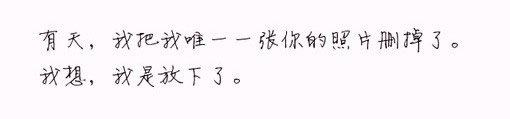 有天，我把我唯一一张你的照片删掉了。
我想，我是放下了。